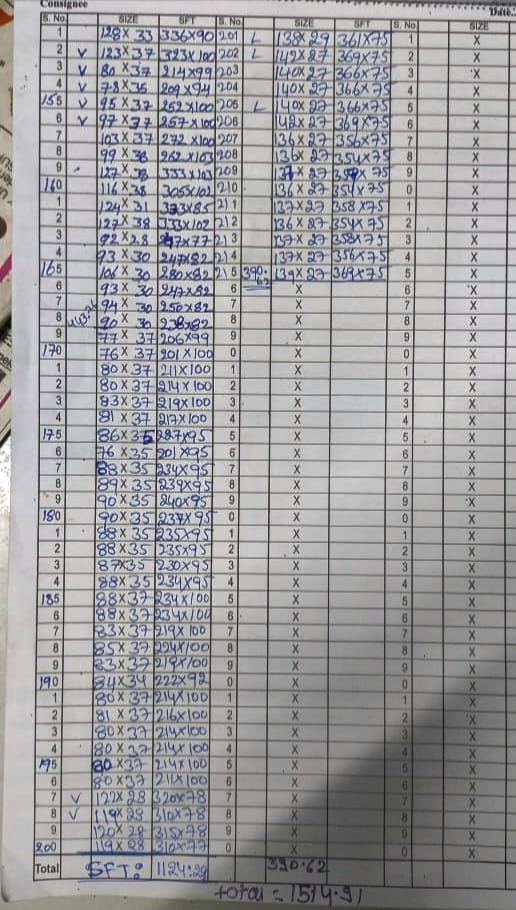 Consignee
Date:
S. No. SIZE SFT S. No. SIZE SFT S. No. SIZE
1 128 x 33 336x90 201 L 138x29 361x75 1 X
2 v 123x37 323x100 202 L 142x27 369x75 2 X
3 v 80 x 37 214x99 203 140x27 366x75 3 X
4 v 78x35 209x94 204 140x27 366x75 4 X
155 v 95 x 37 252x100 205 L 140x27 366x75 5 X
6 v 97 x 37 257x100 206 142x27 369x75 6 X
7 103x37 272x100 207 136x27 356x75 7 X
8 99x38 262x103 208 136x27 354x75 8 X
9 127x38 333x103 209 x27 x75 9 X
160 116x38 305x102 210 136x27 354x75 0 X
1 124x31 x85 211 137x27 358x75 1 X
2 127x38 333x102 212 136x27 354x75 2 X
3 92x28 x77 213 137x27 358x75 3 X
4 93x30 247x82 214 137x27 356x75 4 X
165 106x30 280x82 215 390.62 139x27 369x75 5 X
6 93x30 247x82 6 X 6 X
7 94x30 250x82 7 X 7 X
8 90x30 238x82 8 X 8 X
9 77x37 206x99 9 X 9 X
170 76x37 201x100 0 X 0 X
1 80x37 211x100 1 X 1 X
2 80x37 214x100 2 X 2 X
3 83x37 219x100 3 X 3 X
4 81x37 217x100 4 X 4 X
175 86x35 227x95 5 X 5 X
6 76x35 201x95 6 X 6 X
7 88x35 234x95 7 X 7 X
8 89x35 239x95 8 X 8 X
9 90x35 240x95 9 X 9 X
180 90x35 237x95 0 X 0 X
1 88x35 235x95 1 X 1 X
2 88x35 235x95 2 X 2 X
3 87x35 230x95 3 X 3 X
4 88x35 234x95 4 X 4 X
185 88x37 234x100 5 X 5 X
6 88x37 234x100 6 X 6 X
7 83x37 219x100 7 X 7 X
8 85x37 224x100 8 X 8 X
9 83x37 219x100 9 X 9 X
190 84x34 222x92 0 X 0 X
1 80x37 214x100 1 X 1 X
2 81x37 216x100 2 X 2 X
3 80x37 214x100 3 X 3 X
4 80x37 214x100 4 X 4 X
195 80x37 214x100 5 X 5 X
6 80x37 211x100 6 X 6 X
7 v 122x28 320x78 7 X 7 X
8 v 119x28 310x78 8 X 8 X
9 120x28 315x78 9 X 9 X
200 119x28 310x77 0 X 0 X
Total SFT: 1124.29 390.62
total = 1514.91